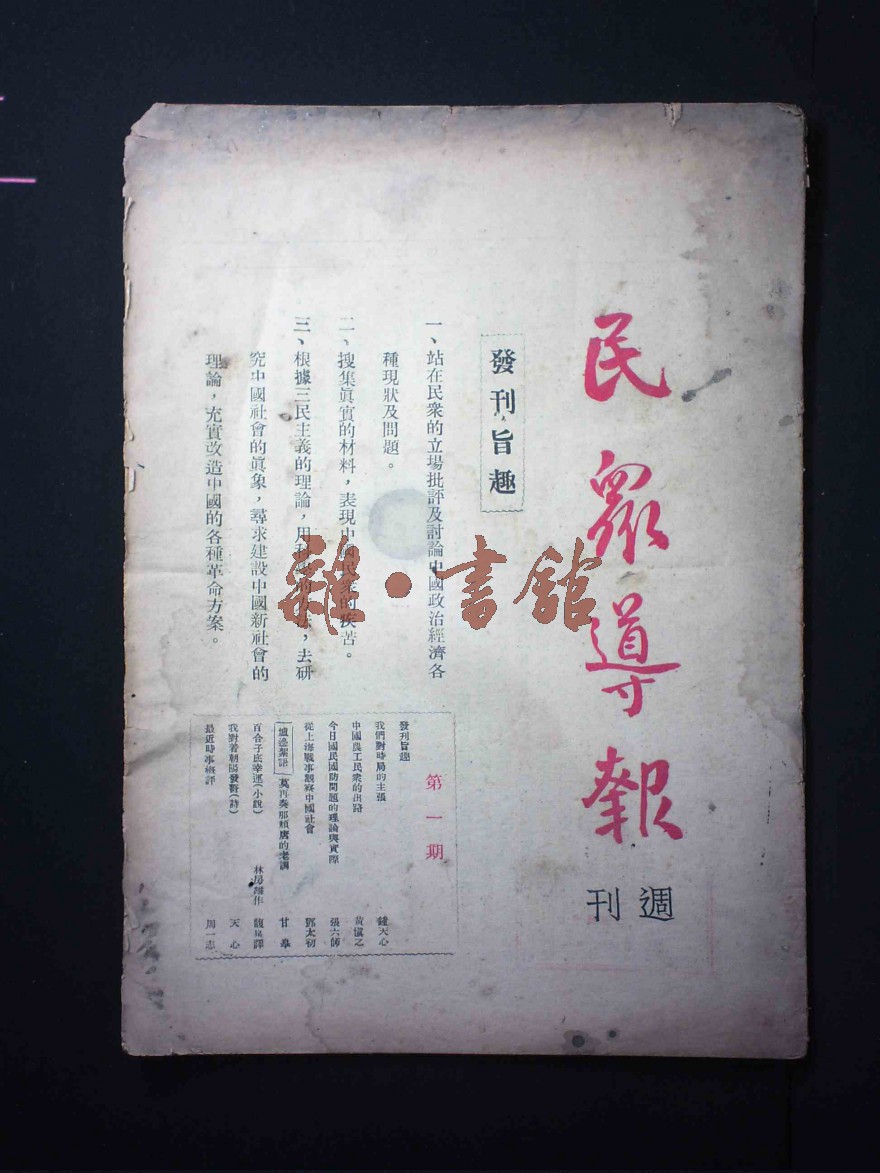 民眾導報
週刊
發刊旨趣
一、站在民衆的立場批評及討論中國政治經濟各
種現狀及問題。
二、搜集眞實的材料，表現中國民衆的疾苦。
三、根據三民主義的理論，用科學的方法，去研
究中國社會的眞象，尋求建設中國新社會的
理論，充實改造中國的各種革命方案。
第一期
發刊旨趣
我們對時局的主張 鍾天心
中國農工民衆的出路 黃愼之
今日國民國防問題的理論與實際 張六師
從上海戰事觀察中國社會 鄧太初
爐邊絮語 莫再奏那頹廢的老調 甘
百合子底幸運(小說) 林房雄作 譯
我對着朝陽發誓(詩) 天心
最近時事 評 周一志
雜·書館